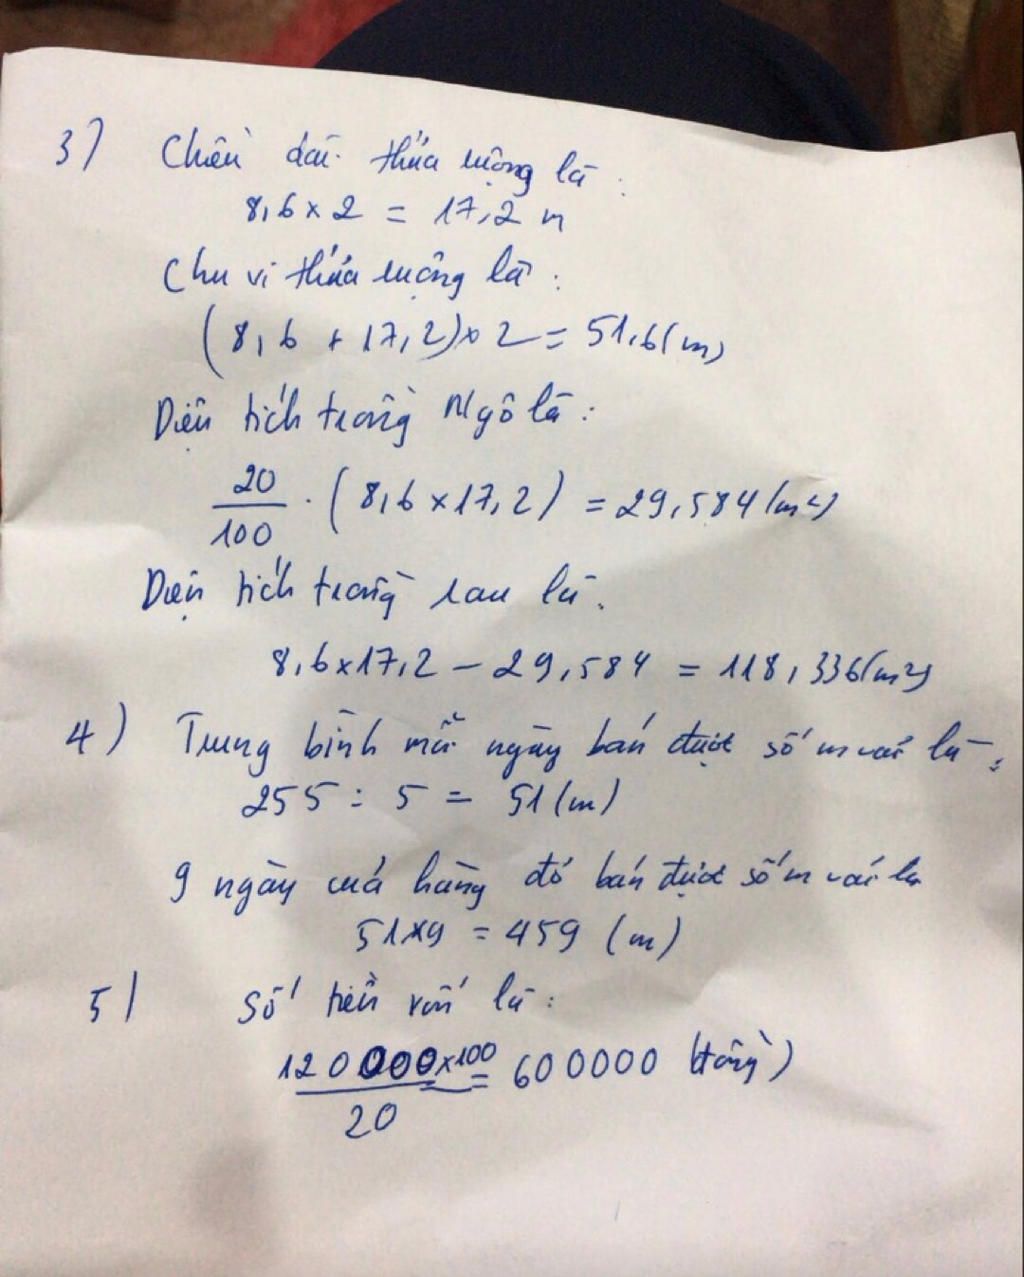 3) Chiều dài thửa ruộng là :
8,6 x 2 = 17,2 m
Chu vi thửa ruộng là :
(8,6 + 17,2) x 2 = 51,6 (m)
Diện tích trồng Ngô là :
20/100 . (8,6 x 17,2) = 29,584 (m²)
Diện tích trồng rau là :
8,6 x 17,2 - 29,584 = 118,336 (m²)
4) Trung bình mỗi ngày bán được số m vải là :
255 : 5 = 51 (m)
9 ngày cửa hàng đó bán được số m vải là
51 x 9 = 459 (m)
5) Số tiền vốn là :
120 000 x 100 / 20 = 600000 (đồng)